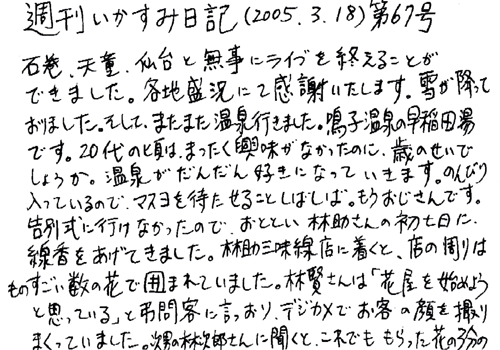 週刊いかすみ日記(2005.3.18)第67号
石巻、天童、仙台と無事にライブを終えることが
できました。各地盛況にて感謝いたします。雪が降って
おりました。そして、またまた温泉行きました。鳴子温泉の早稲田湯
です。20代の頃は、まったく興味がなかったのに、歳のせいで
しょうか。温泉がだんだん好きになっていきます。のんびり
入っているので、マスヨを待たせることしばしば。もうおじさんです。
告別式に行けなかったので、おととい林助さんの初七日に、
線香をあげてきました。林助三味線店に着くと、店の周りは
ものすごい数の花で囲まれていました。林賢さんは「花屋を始めよう
と思っている」と弔問客に言っおり、デジカメでお客の顔を撮り
まくっていました。次男の林次郎さんに聞くと、これでももらった花の3分の